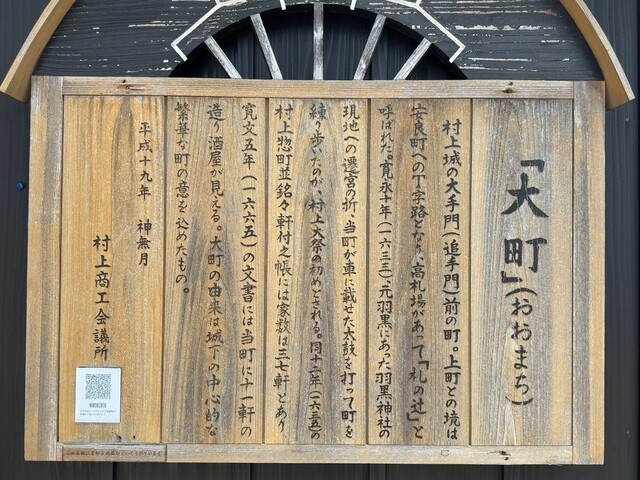 「大町」(おおまち)
村上城の大手門(追手門)前の町。上町との境は
安良町への丁字路となり、高札場があって「札の辻」と
呼ばれた。寛永十年(一六三三)、元羽黒にあった羽黒神社の
現地への遷宮の折、当町が車に載せた太鼓を打って町を
練り歩いたのが、村上大祭の初めとされる。同十二年(一六三五)の
村上惣町並銘々軒付之帳には家数は三七軒とあり、
寛文五年(一六六五)の文書には当町に十一軒の
造り酒屋が見える。大町の由来は城下の中心的な
繁華な町の意を込めたもの。
平成十九年 神無月
村上商工会議所